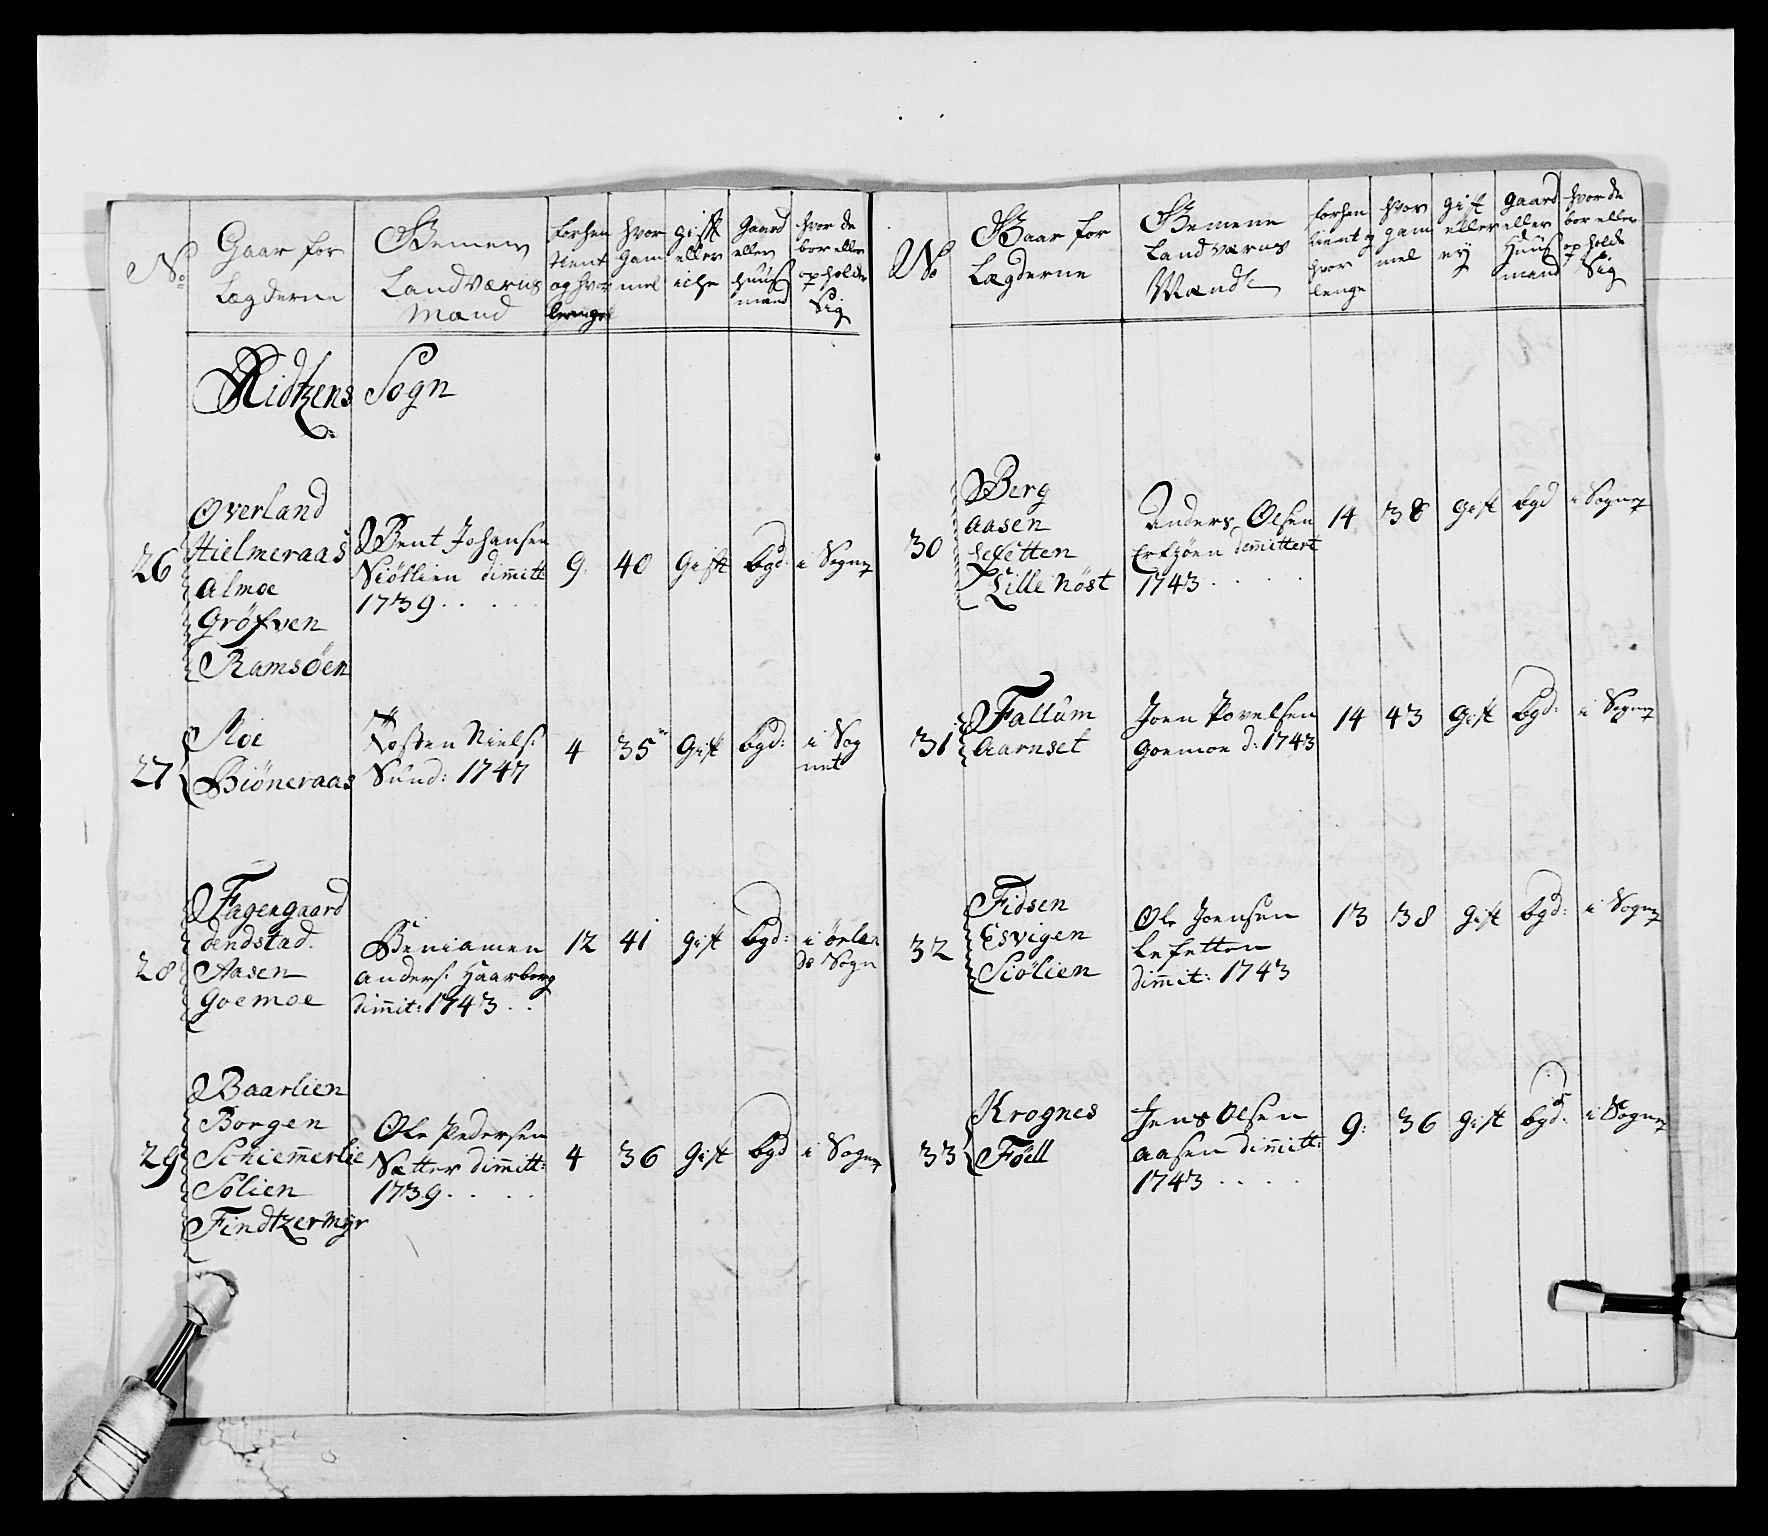 No
Gaar for
Lægderne
Gemene
Landværns
Mand
forhen
tient
og hvor
lenge
hvor
gam
mel
gift
eller
iche
gaard
eller
huus
mand
hvor de
bor eller
opholde
Sig
Ridtzens Sogn
26
Overland
Hielmeraas
Almoe
Gröfven
Ramsöen
Bent Johansen
Siöllien dimitt
1739 . . . . .
9: 40 Gift bgd: i Sogn
27
Moe
Biöneraas
Tosten Niels:
Sund: 1747
4 35 Gift bgd: i Sog
net
28
Fagengaard
dendstad.
Aasen
Goemoe
Beniamen
Anders: Haarberg
dimit: 1743 . .
12 41 gift bgd: i örlan
ds Sogn
29
Baarlien
Borgen
Schiemerlie
Solien
Findtzermyr
Ole Pedersen
Sætter dimitt:
1739 . . . . .
4 36 gift bgd i Sogn
No
Gaar for
Lægderne
Gemene
Landværns
Mand
forhen
tient og
hvor
lenge
hvor
gam
mel
gift
eller
ey
gaard
eller
huus
mand
hvor de
bor eller
opholde
Sig
30
Berg
Aasen
Lefetten
Lille Nöst
Anders Olsen
dimittert
1743 . . . . .
14 38 Gift bgd i Sogn
31
Fallum
Aarnset
Joen Povelsen
Goemoe d: 1743
14 43 Gift bgd: i Sogn
32
Fidsen
Esvigen
Siölien
Ole Joensen
Lefetten
dimit: 1743
13 38 Gift bgd: i Sogn
33
Krognes
Föll
Jens Olsen
Aasen dimitt:
1743 . . . . .
9: 36 gift bgd: i Sogn